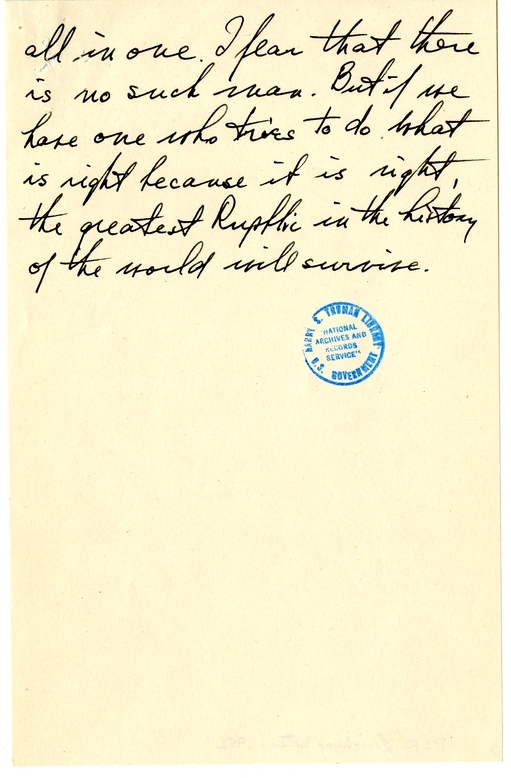 all in one. I fear that there
is no such man. But if we
have one who tries to do what
is right because it is right,
the greatest Rupflic in the history
of the world will survive.
HARRY S. TRUMAN LIBRARY
"NATIONAL
ARCHIVES AND
RECORDS
SERVICE"
U.S. GOVERNMENT